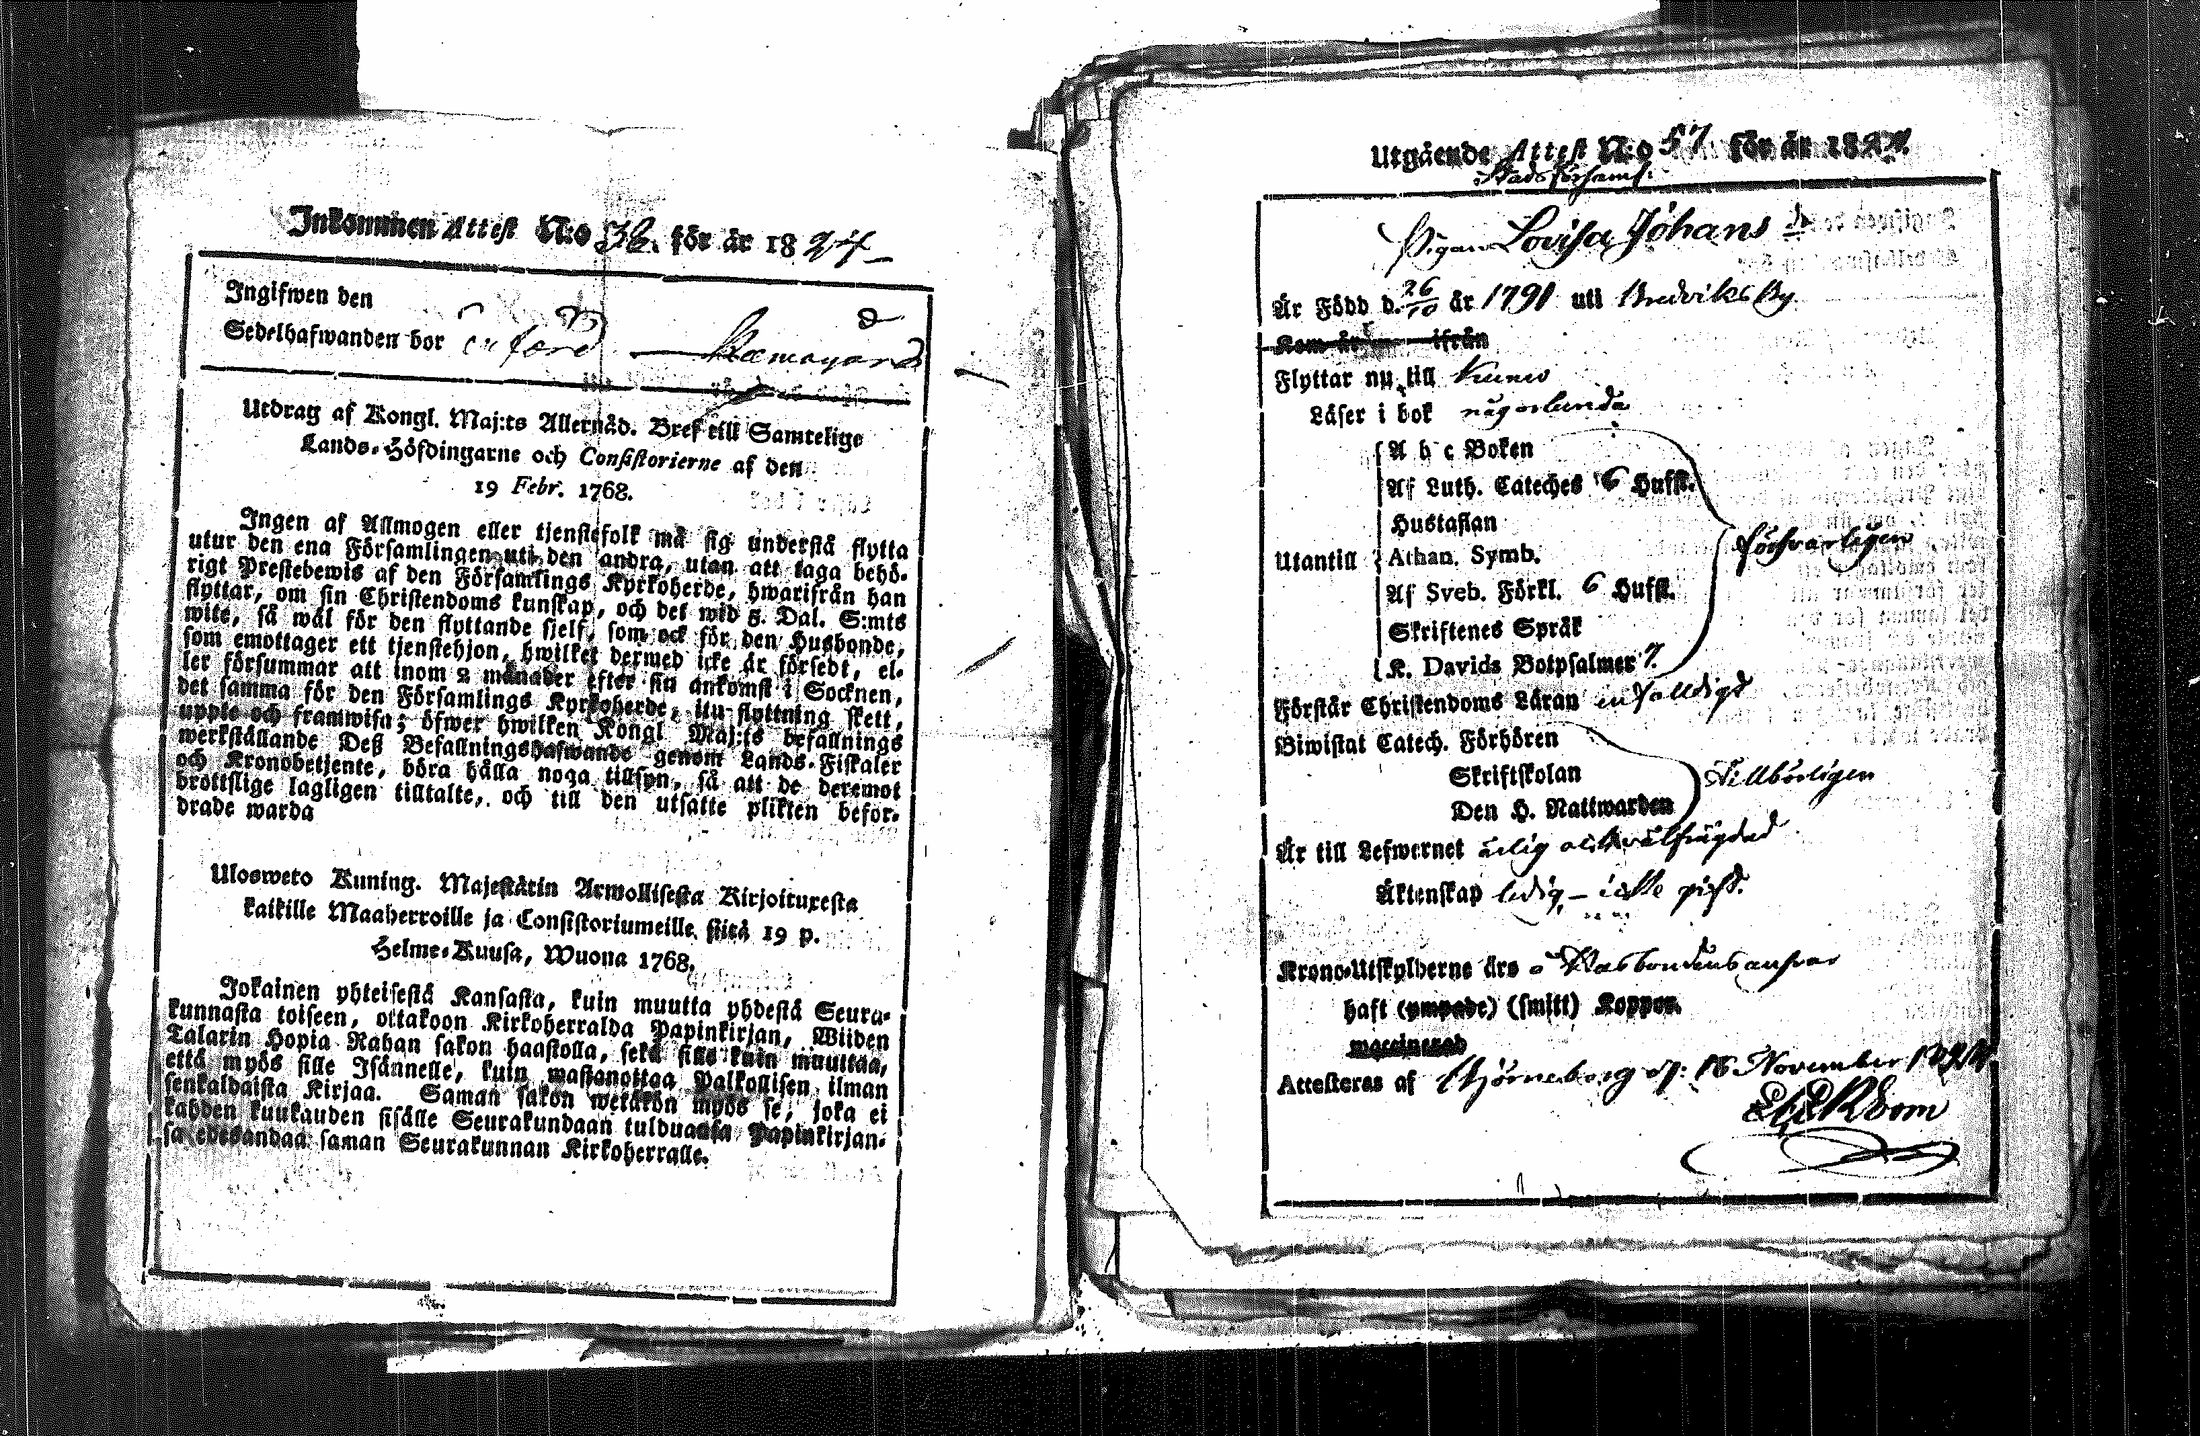 Inkommen Attest N:o 36. för år 1824
Ingifwen den
Sedelhafwanden bor införd
Utdrag af Kongl. Maj:ts Allernåd. Bref till Samtelige
Lands-Höfdingarne och Consistorierne af den
19 Febr. 1768.
Ingen af Allmogen eller tjenstefolk må sig understå flytta
utur den ena Församlingen uti den andra, utan att taga behö-
rigt Prestebewis af den Församlings Kyrkoherde, hwarifrån han
flyttar, om sin Christendoms kunskap, och det wid 5. Dal. S:mts
wite, så wäl för den flyttande sjelf, som ock för den Husbonde,
som emottager ett tjenstehjon, hwilket dermed icke är försedt, el-
ler försummar att inom 2 månader efter sin ankomst i Socknen,
det samma för den Församlings Kyrkoherde, itu flyttning skett,
uppte och framwisa; öfwer hwilken Kongl Maj:ts befallnings
werkställande Deß Befallningshafwande genom Lands-Fiskaler
och Kronobetjente, böra hålla noga tillsyn, så att de deremot
brottslige lagligen tilltalte, och till den utsatte plikten befor-
drade warda
Ulosweto Kuning. Majestätin Armollisesta Kirjoituxesta
kaikille Maaherroille ja Consistoriumeille, siitä 19 p.
Helme-Kuusa, Wuona 1768.
Jokainen yhteisestä Kansasta, kuin muutta yhdestä Seura-
kunnasta toiseen, ottakoon Kirkoherralda Papinkirjan, Wiiden
Talarin Hopia Rahan sakon haastolla, sekä sille kuin muuttaa,
että myös sille Isännelle, kuin wastanottaa Palkollisen ilman
senkaldaista Kirjaa. Saman sakon wetäkön myös se, joka ei
kahden kuukauden sisälle Seurakundaan tulduansa Papinkirjan-
sa edesandaa saman Seurakunnan Kirkoherralle.
Utgående Attest N:o 57 för år 1824.
Stadsförsaml.
Pigan Lovisa Johans dr
Är Född d. 26/10 år 1791 uti Bredviks By.
Kom år ifrån
Flyttar nu till Kumo
Läser i bok någorlunda
A b c Boken
Af Luth. Cateches 6 Hufst.
Hustaflan
Utantill Athan. Symb. försvarligen
Af Sveb. Förkl. 6 Hufst.
Skriftenes Språk
K. Davids Botpsalmer 7.
Förstår Christendoms Läran enfalldigt
Biwistat Catech. Förhören
Skriftskolan Tillbörligen
Den H. Nattwarden
Är till Lefwernet ärlig och välfrägdad
Äktenskap ledig, – icke pigt.
Krono-Utskylderne äro å Husbondens ansvar
haft (ympade) (smitt) Koppor.
waccinerad
Attesteras af Björneborg d: 16 November 1824